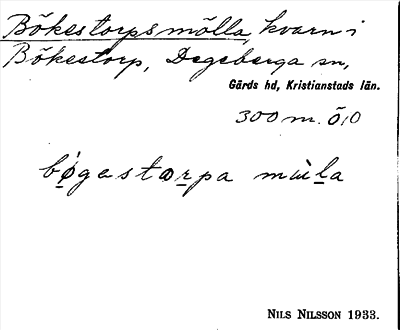 Bökestorpsmölla, kvarn i
Bökestorp, Degeberga sn,
Gärds hd, Kristianstads län.
300 m. Ö, O
bø̀gestarpa mùla
NILS NILSSON 1933.